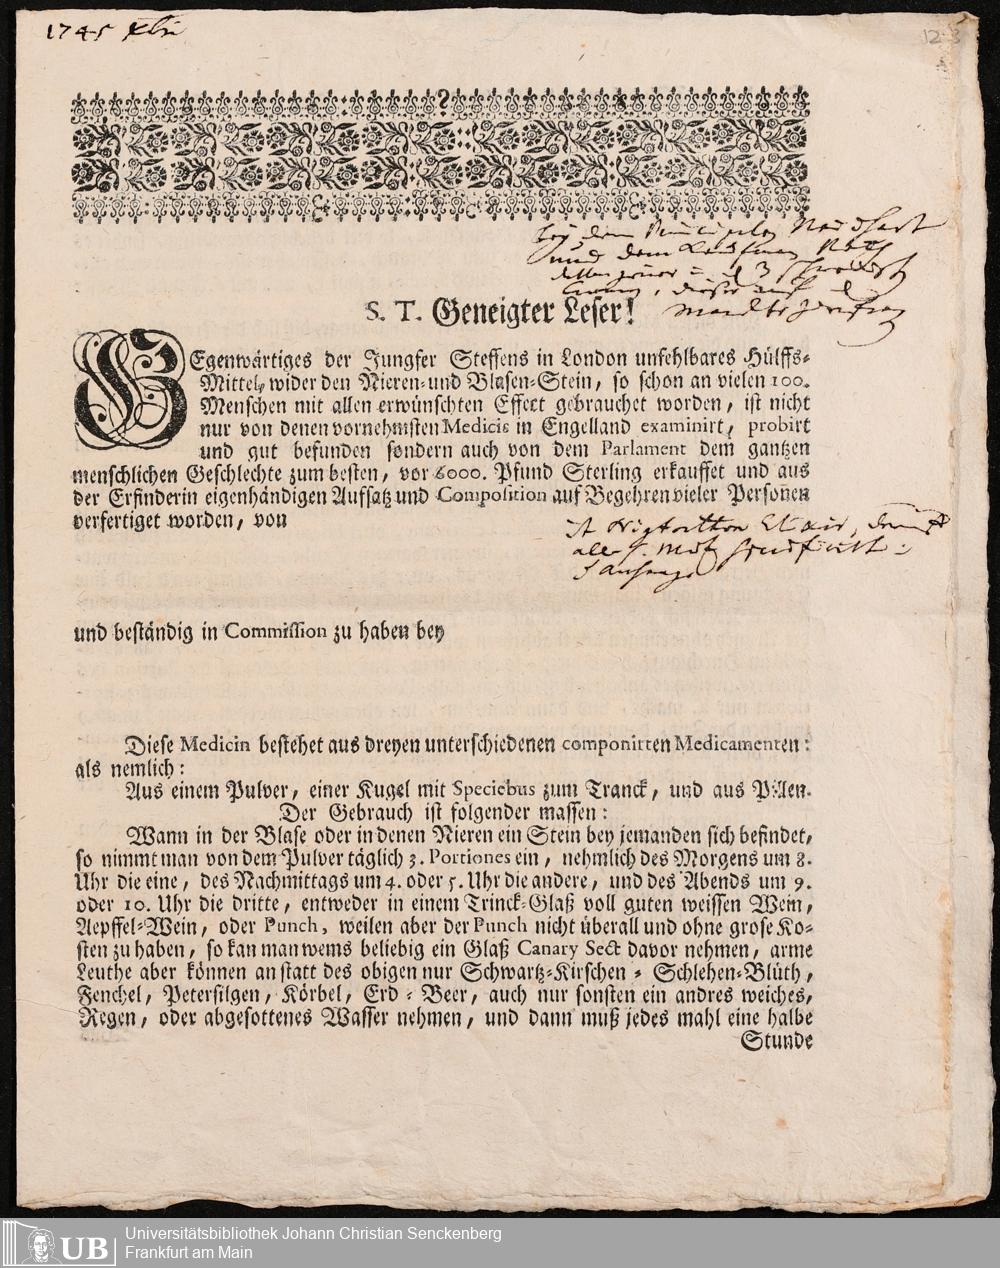 1745 Xbr
12
S. T. Geneigter Leser!
GEgenwärtiges der Jungfer Steffens in London unfehlbares Hülffs-
Mittel, wider den Nieren- und Blasen-Stein, so schon an vielen 100.
Menschen mit allen erwünschten Effect gebrauchet worden, ist nicht
nur von denen vornehmsten Medicis in Engelland examinirt, probirt
und gut befunden sondern auch von dem Parlament dem gantzen
menschlichen Geschlechte zum besten, vor 6000. Pfund Sterling erkauffet und aus
der Erfinderin eigenhändigen Aufsatz und Composition auf Begehren vieler Personen
verfertiget worden, von
und beständig in Commission zu haben bey
Diese Medicin bestehet aus dreyen unterschiedenen componirten Medicamenten:
als nemlich:
Aus einem Pulver, einer Kugel mit Speciebus zum Tranck, und aus Pillen.
Der Gebrauch ist folgender massen:
Wann in der Blase oder in denen Nieren ein Stein bey jemanden sich befindet,
so nimmt man von dem Pulver täglich 3. Portiones ein, nehmlich des Morgens um 8.
Uhr die eine, des Nachmittags um 4. oder 5. Uhr die andere, und des Abends um 9.
oder 10. Uhr die dritte, entweder in einem Trinck-Glaß voll guten weissen Wein,
Aepffel-Wein, oder Punch, weilen aber der Punch nicht überall und ohne grose Ko-
sten zu haben, so kan man wems beliebig ein Glaß Canary Sect davor nehmen, arme
Leuthe aber können an statt des obigen nur Schwartz-Kirschen- Schlehen-Blüth,
Fenchel, Petersilgen, Körbel, Erd-Beer, auch nur sonsten ein andres weiches,
Regen, oder abgesottenes Wasser nehmen, und dann muß jedes mahl eine halbe
Stunde
UB
Universitätsbibliothek Johann Christian Senckenberg
Frankfurt am Main